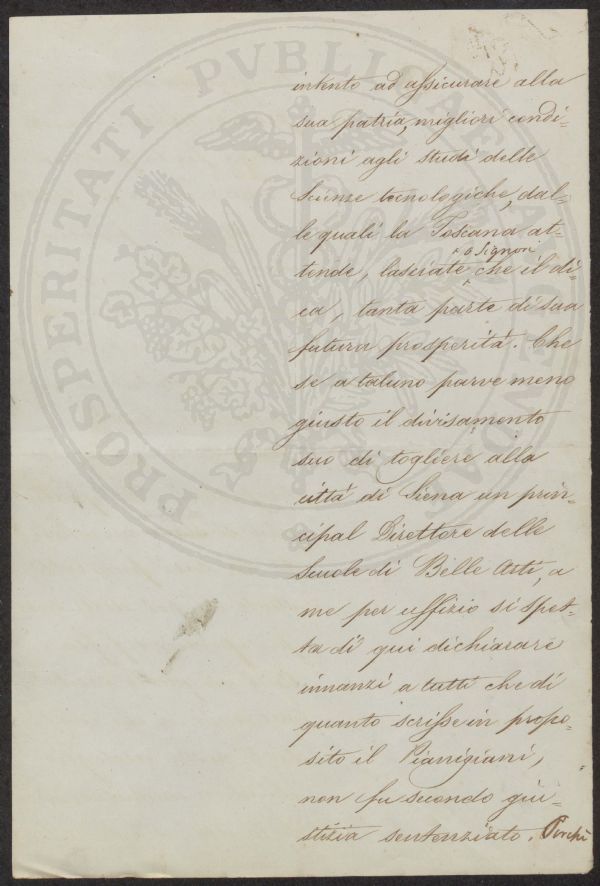 PROSPERITATI PVBLICAE AVGENDAE
intento ad assicurare alla
sua patria, migliori condi=
zioni agli studi delle
Scienze tecnologiche, dal=
le quali la Toscana at=
o Signori
tende, lasciate che il di=
ca, tanta parte di sua
futura prosperità. Che
se a taluno parve meno
giusto il divisamento
suo di togliere alla
città di Siena un prin=
cipal Direttore delle
Scuole di Belle Arti, a
me per uffizio si spet=
ta di qui dichiarare
innanzi a tutti che di
quanto scrisse in propo=
sito il Pianigiani,
non fu secondo giu=
stizia sentenziato. Perchè